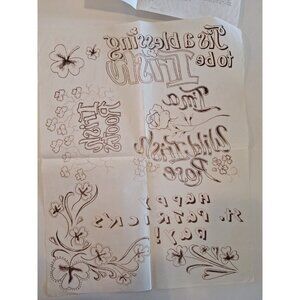 'Tis a blessing
to be IRISH
I'm a
Wild Irish
Rose
100%
Irish
HAPPY
St. PATRICK'S
DAY!